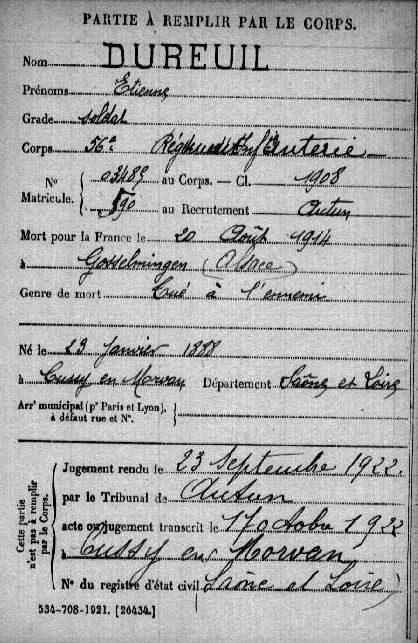 PARTIE À REMPLIR PAR LE CORPS.
Nom DUREUIL
Prénoms Etienne
Grade Soldat
Corps 56e Régiment d'Infanterie
N° 03485 au Corps. — Cl. 1908
Matricule. 590 au Recrutement Autun
Mort pour la France le 20 Août 1914
à Gosselmingen (Alsace)
Genre de mort Tué à l'ennemi
Né le 23 Janvier 1888
à Cussy en Morvan Département Saône et Loire
Arrt municipal (pr Paris et Lyon), à défaut rue et N°.
Cette partie n'est pas à remplir par le Corps.
Jugement rendu le 23 Septembre 1922.
par le Tribunal de Autun
acte ou jugement transcrit le 17 Octobre 1922
à Cussy en Morvan
N° du registre d'état civil (Saône et Loire)
534-708-1921. [26434.]